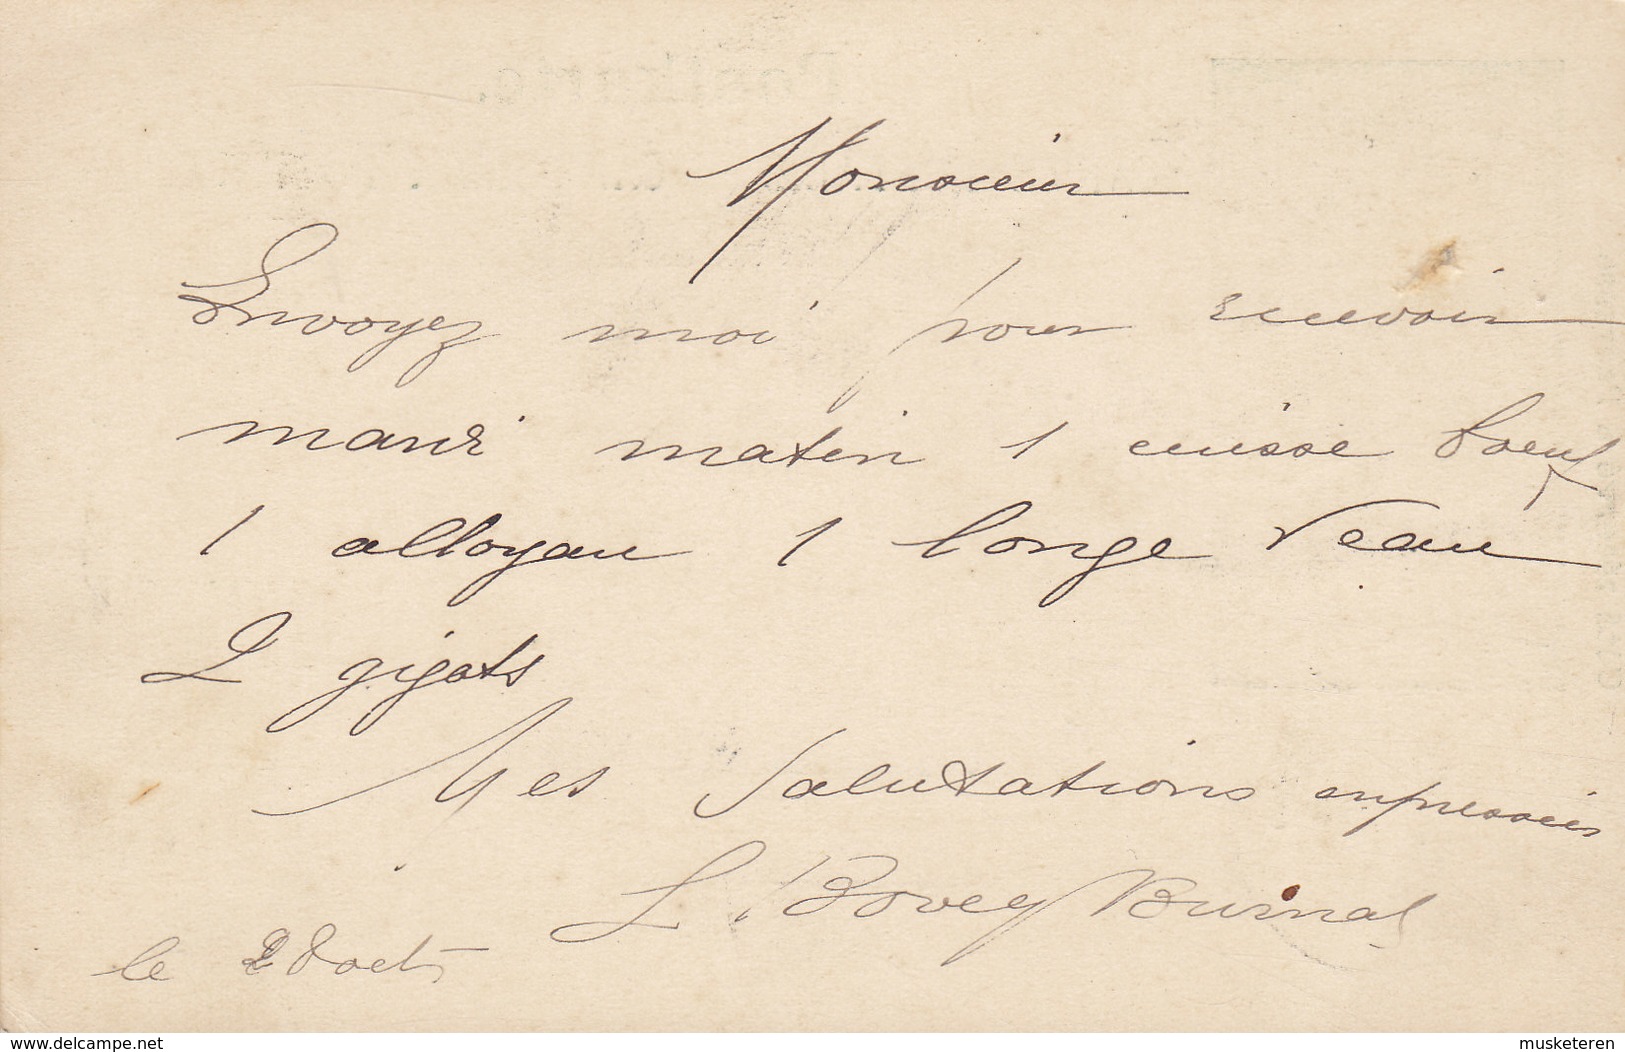 Monsieur
Envoyez moi pour recevoir
mardi matin 1 cuisse boeuf
1 alloyau 1 longe Veau
2 gigots
Mes Salutations empressées
L. Bovey Burnat
le 28 oct
www.delcampe.net
musketeren